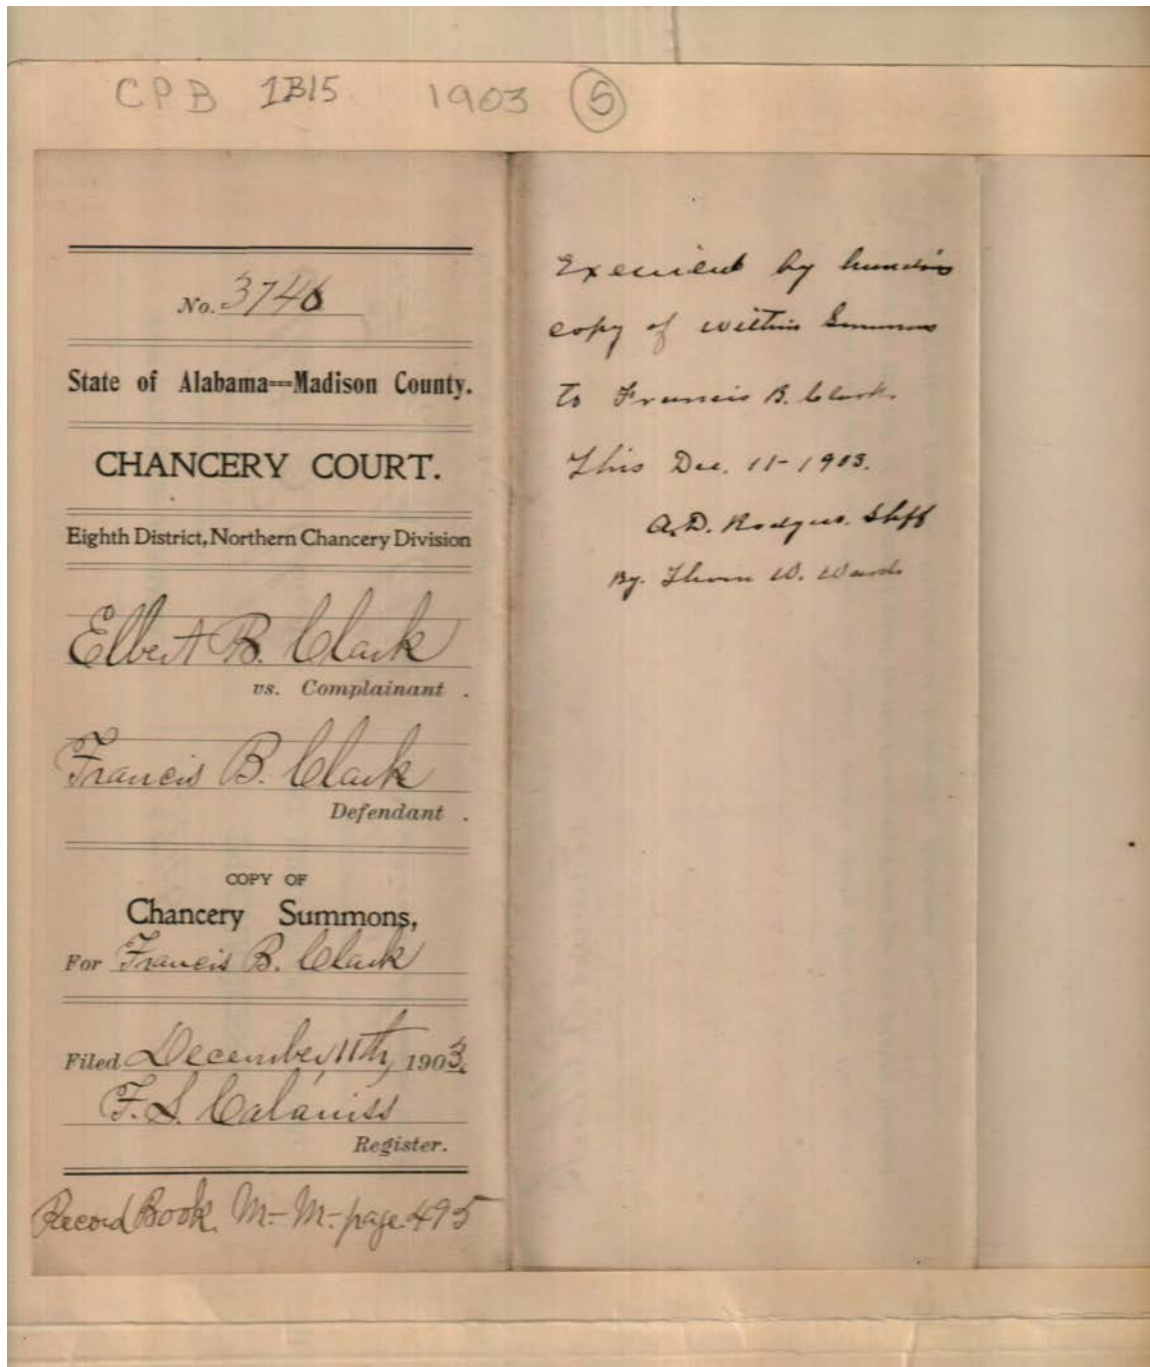 CPB 1B15 1903 5
No. 3746
State of Alabama---Madison County.
CHANCERY COURT.
Eighth District, Northern Chancery Division
Elbert B. Clark
vs. Complainant .
Francis B. Clark
Defendant .
COPY OF
Chancery Summons,
For Francis B. Clark
Filed December, 11th, 1903.
F. S.
Register.
Record Book. M.- M.- page. 495
Executed by handing
copy of within Summons
to Francis B. Clark.
This Dec. 11- 1903.
A.D. Rodgers. Shff
By. W. Ward